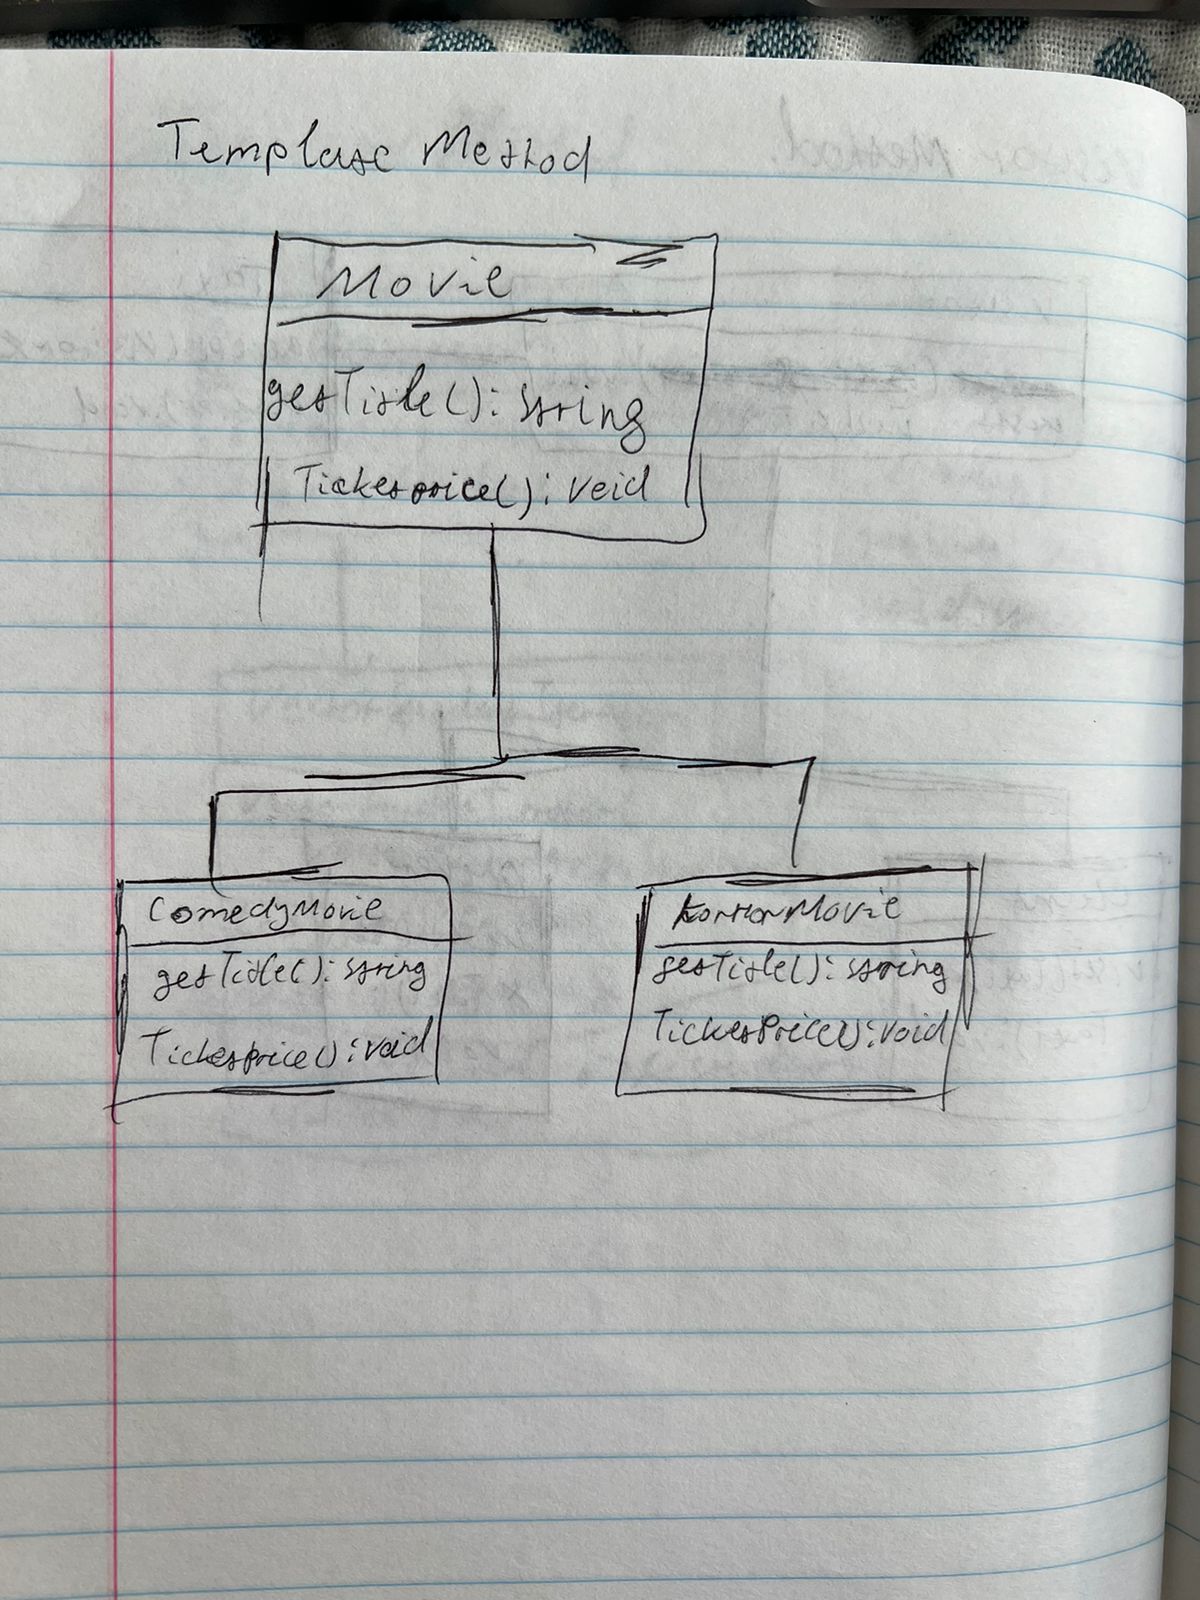 Template Method
Movie
getTitle(): string
Ticketprice(): void
ComedyMovie
getTitle(): string
TicketPrice(): void
HorrorMovie
getTitle(): string
TicketPrice(): void